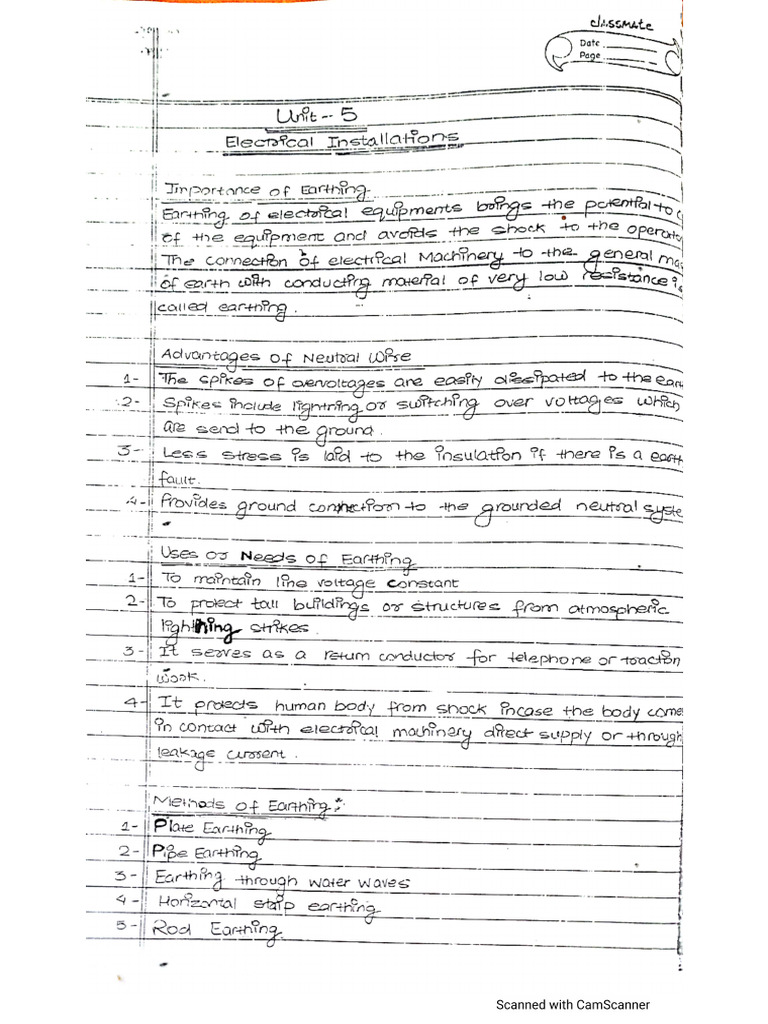 classmate
Date
Page
Unit-- 5
Electrical Installations
Importance of Earthing
Earthing of electrical equipments brings the potential to
of the equipment and avoids the shock to the operato
The connection of electrical Machinery to the general ma
of earth with conducting material of very low resistance is
called earthing.
Advantages of Neutral Wire
1- The spikes of overvoltages are easily dissipated to the ear
2- Spikes include lightning or switching over voltages which
are send to the ground.
3- Less stress is laid to the insulation if there is a earth
fault.
4- Provides ground connection to the grounded neutral syste
Uses or Needs of Earthing
1- To maintain line voltage constant
2- To protect tall buildings or structures from atmospheric
lightning strikes.
3- It serves as a return conductor for telephone or traction
work.
4- It protects human body from shock incase the body come
in contact with electrical machinery direct supply or through
leakage current.
Methods of Earthing :-
1- Plate Earthing
2- Pipe Earthing
3- Earthing through water waves
4- Horizontal strip earthing
5- Rod Earthing
Scanned with CamScanner